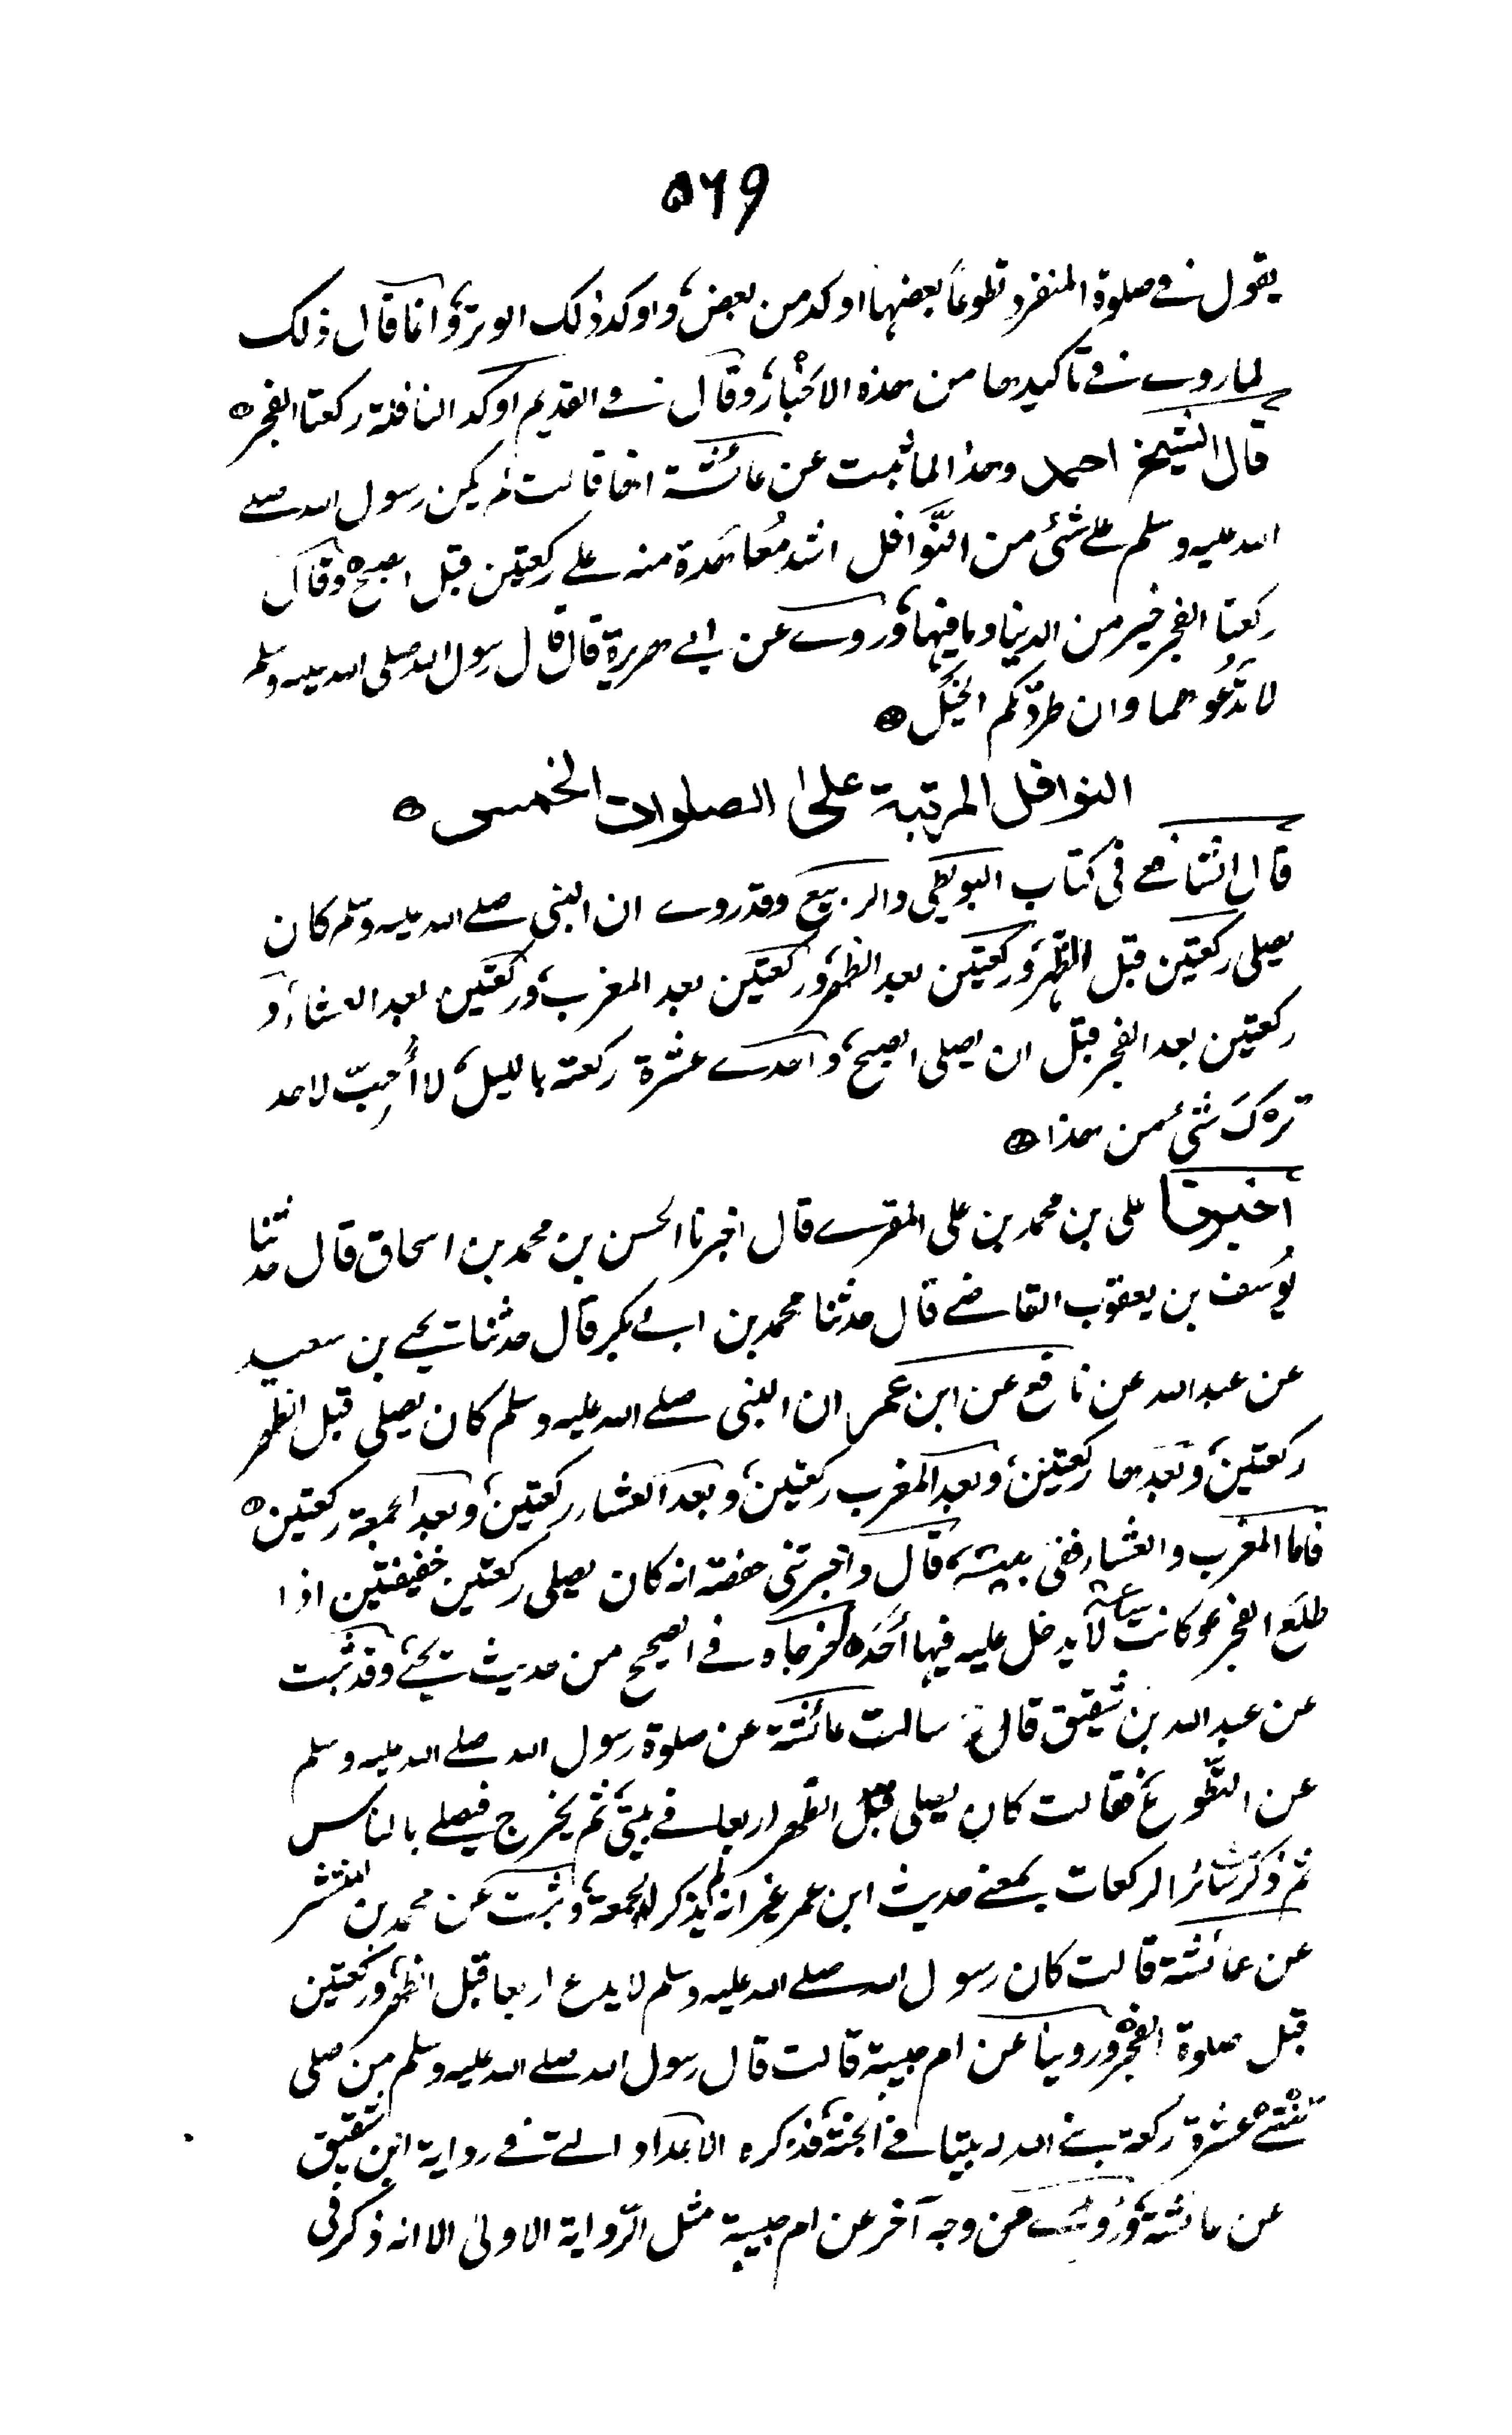 ٥٦٩
يقول في صلوة المنفرد تطوعاً بعضها اوكد من بعض، واوكد ذلك الوتر، وانما قال ذلك
لما روى في تاكيدها من هذه الاخبار، وقال في القديم اوكد النافلة ركعتا الفجر
قال الشيخ احمد وهذا لما ثبت عن عائشة انها قالت لم يكن رسول الله صلى
الله عليه وسلم على شئ من النَّوافل اشد مُعاهَدة منه على ركعتين قبل الصبح وقال
ركعتا الفجر خير من الدنيا وما فيها، وروى عن ابى هريرة قال قال رسول الله صلى الله عليه وسلم
لا تدَعُوهما وان طردتكم الخيل
النوافل المرتبة على الصلوات الخمس
قال الشافعى فى كتاب البويطى والربيع وقد روى ان النبى صلى الله عليه وسلم كان
يصلى ركعتين قبل الظهر، وركعتين بعد الظهر، وركعتين بعد المغرب، وركعتين بعد العشاء، و
ركعتين بعد الفجر قبل ان يصلى الصبح، واحدى عشرة ركعة بالليل، لا أُحِبّ لاحد
ترك شئ من هذا
اخبرنا على بن محمد بن على المقرى قال اخبرنا الحسن بن محمد بن اسحاق قال حدثنا
يُوسف بن يعقوب القاضى قال حدثنا محمد بن ابى بكر قال حدثنا يحيى بن سعيد
عن عبد الله عن نافع عن ابن عمر ان النبى صلى الله عليه وسلم كان يصلى قبل الظهر
ركعتين، وبَعدها ركعتين، وبعد المغرب ركعتين، وبعد العشاء ركعتين، وبعد الجمعة ركعتين
فاما المغرب والعشاء ففى بيته، قال واخبرتنى حفصة انه كان يصلى ركعتين خفيفتين اذا
طلَع الفجر وكانت ساعة لا يدخل عليه فيها أحَد اخرجاه فى الصحيح من حديث يحيى، وقد ثبت
عن عبد الله بن شقيق قال سالت عائشة عن صلوة رسول الله صلى الله عليه وسلم
عن التطّوع فقالت كان يصلى قبل الظهر اربعا فى بيتى، ثم يخرج فيصلى بالناس
ثم ذكرت سائر الركعات بمعنى حديث ابن عمر غير انه لم يذكر الجمعة، وثبت عن محمد بن المنتشر
عن عائشة قالت كان رسول الله صلى الله عليه وسلم لا يدع اربعا قبل الظهر، وركعتين
قبل صلوة الفجر، وروينا عن ام حبيبة قالت قال رسول الله صلى الله عليه وسلم من صلى
ثنتى عشرة ركعة بنى الله له بيتا فى الجنة، فذكره الاعداد التى فى رواية ابن شقيق
عن عائشة، ورُوى من وجه آخر عن ام حبيبة مثل الرّواية الاولى الا انه ذكر فى